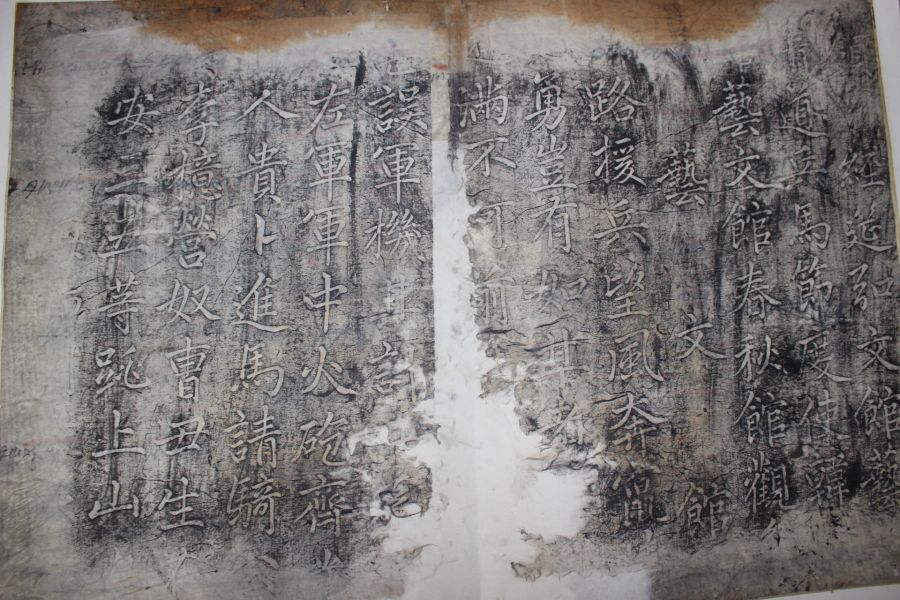 經筵弘文館藝
道兵馬節度使韓
藝文館春秋館觀
藝文館
路援兵望風奔潰
勇豈有如其者
滿不可前
誤軍機其罪
左軍軍中火砲齊
人貴卜進馬請騎
李營奴曹丑生
安二土等跣上山